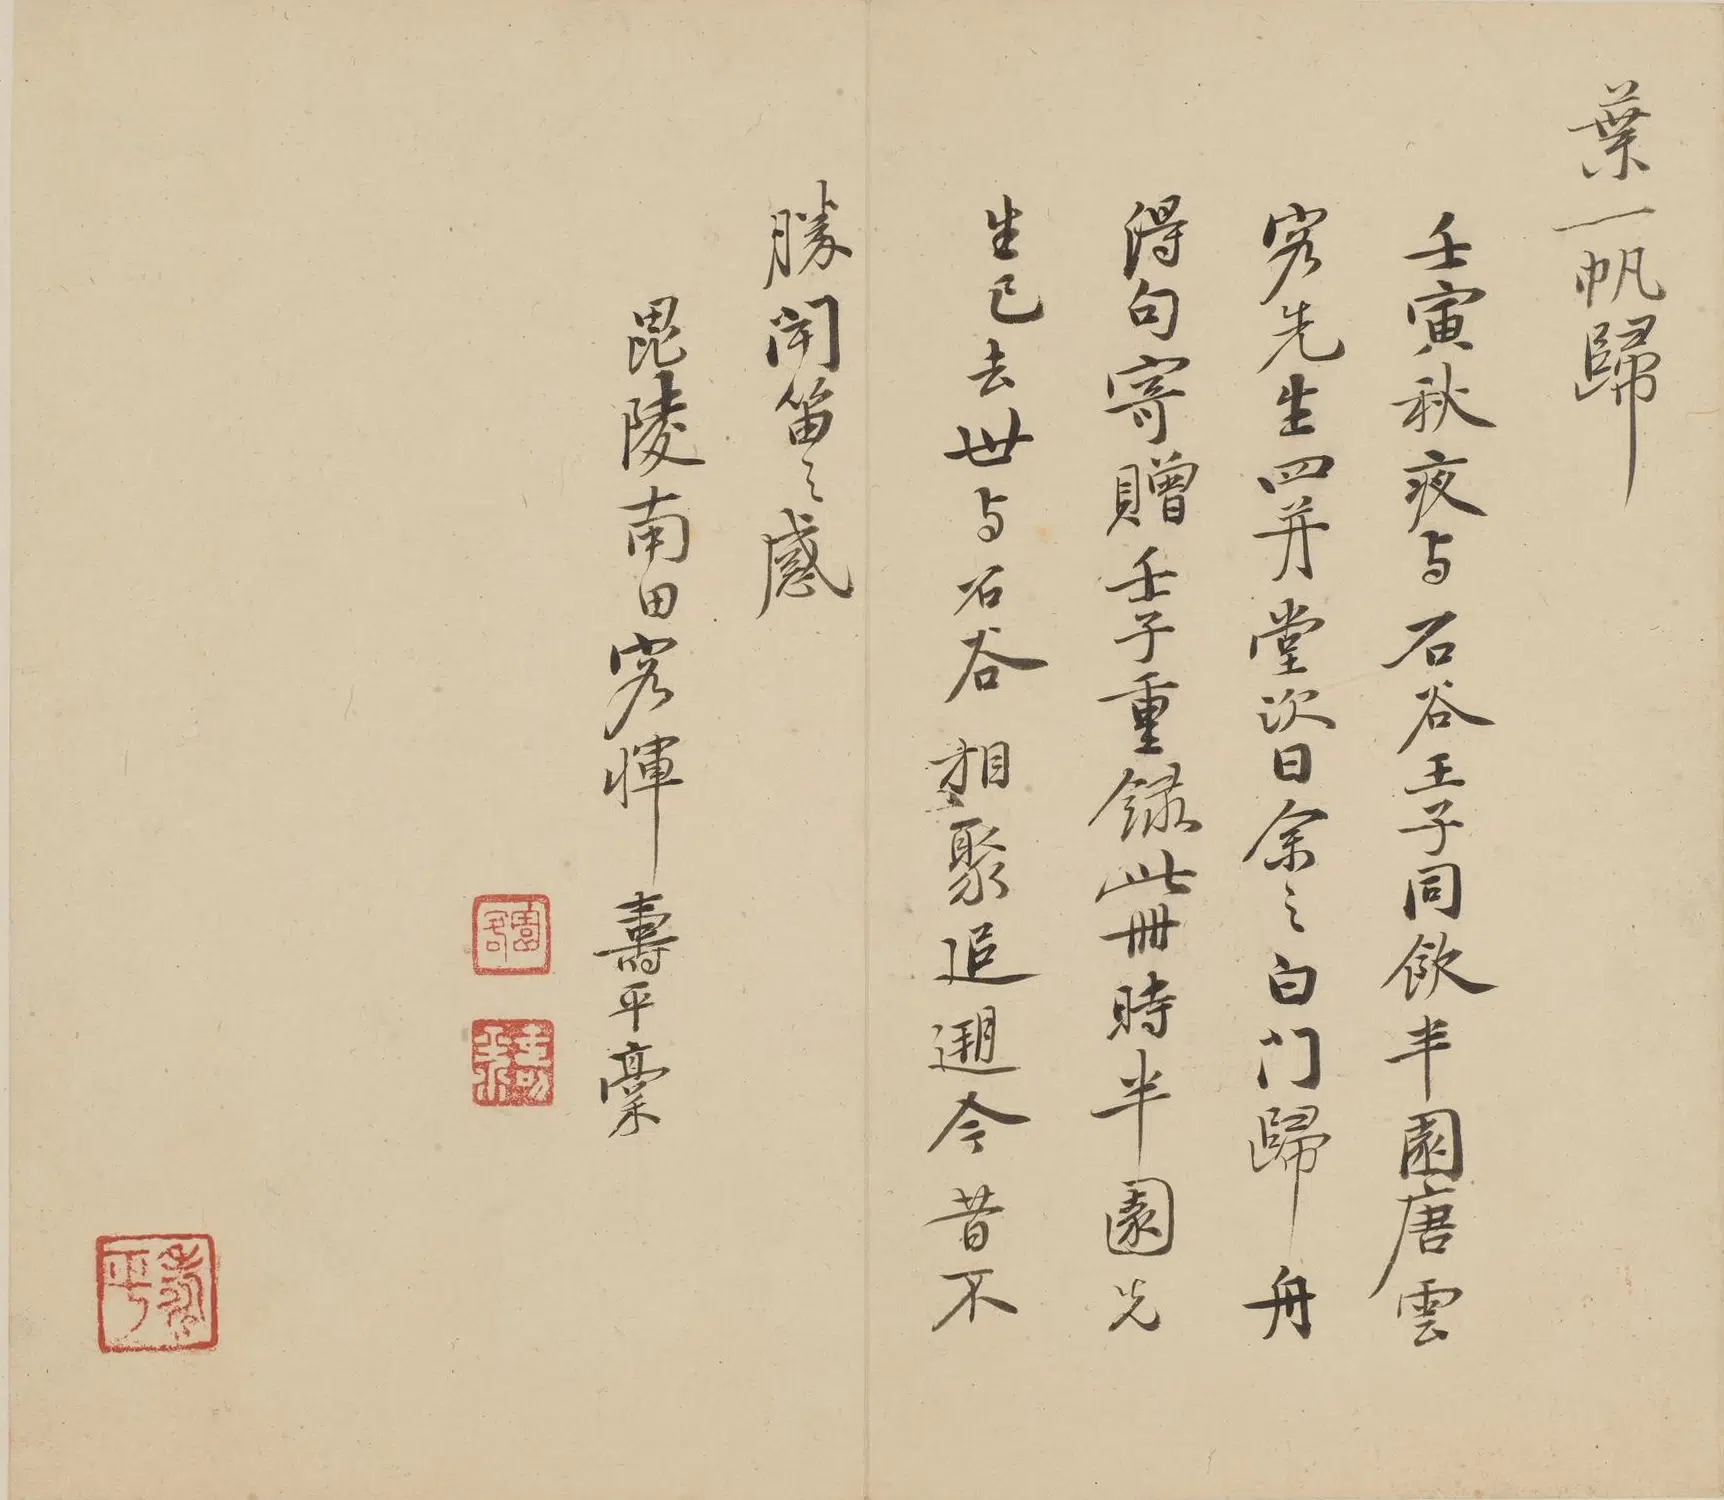 葉一帆歸
壬寅秋夜与石谷王子同飲半園唐雲
客先生四并堂次日余之白门歸舟
得句寄贈壬子重錄此冊時半園先
生已去世与石谷相聚追遡今昔不
勝闻笛之感
毘陵南田客惲壽平稾
園客
壽平